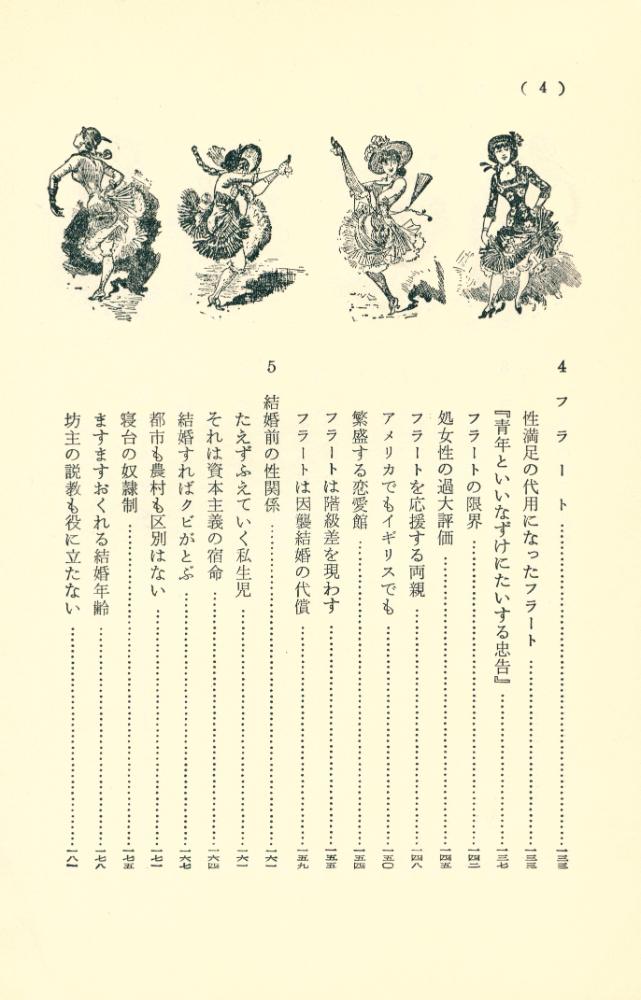 ( 4 )
4 フラート……一三三
性満足の代用になったフラート……一三三
『青年といいなずけにたいする忠告』……一三七
フラートの限界……一四二
処女性の過大評価……一四五
フラートを応援する両親……一四八
アメリカでもイギリスでも……一五〇
繁盛する恋愛館……一五四
フラートは階級差を現わす……一五五
フラートは因襲結婚の代償……一五九
5 結婚前の性関係……一六一
たえずふえていく私生児……一六一
それは資本主義の宿命……一六四
結婚すればクビがとぶ……一六七
都市も農村も区別はない……一七一
寝台の奴隷制……一七五
ますますおくれる結婚年齢……一七八
坊主の説教も役に立たない……一八一